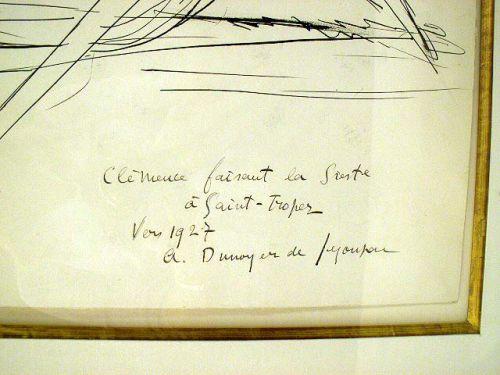 Clémence faisant la Sieste
à Saint-Tropez
Vers 1927
A. Dunoyer de Segonzac